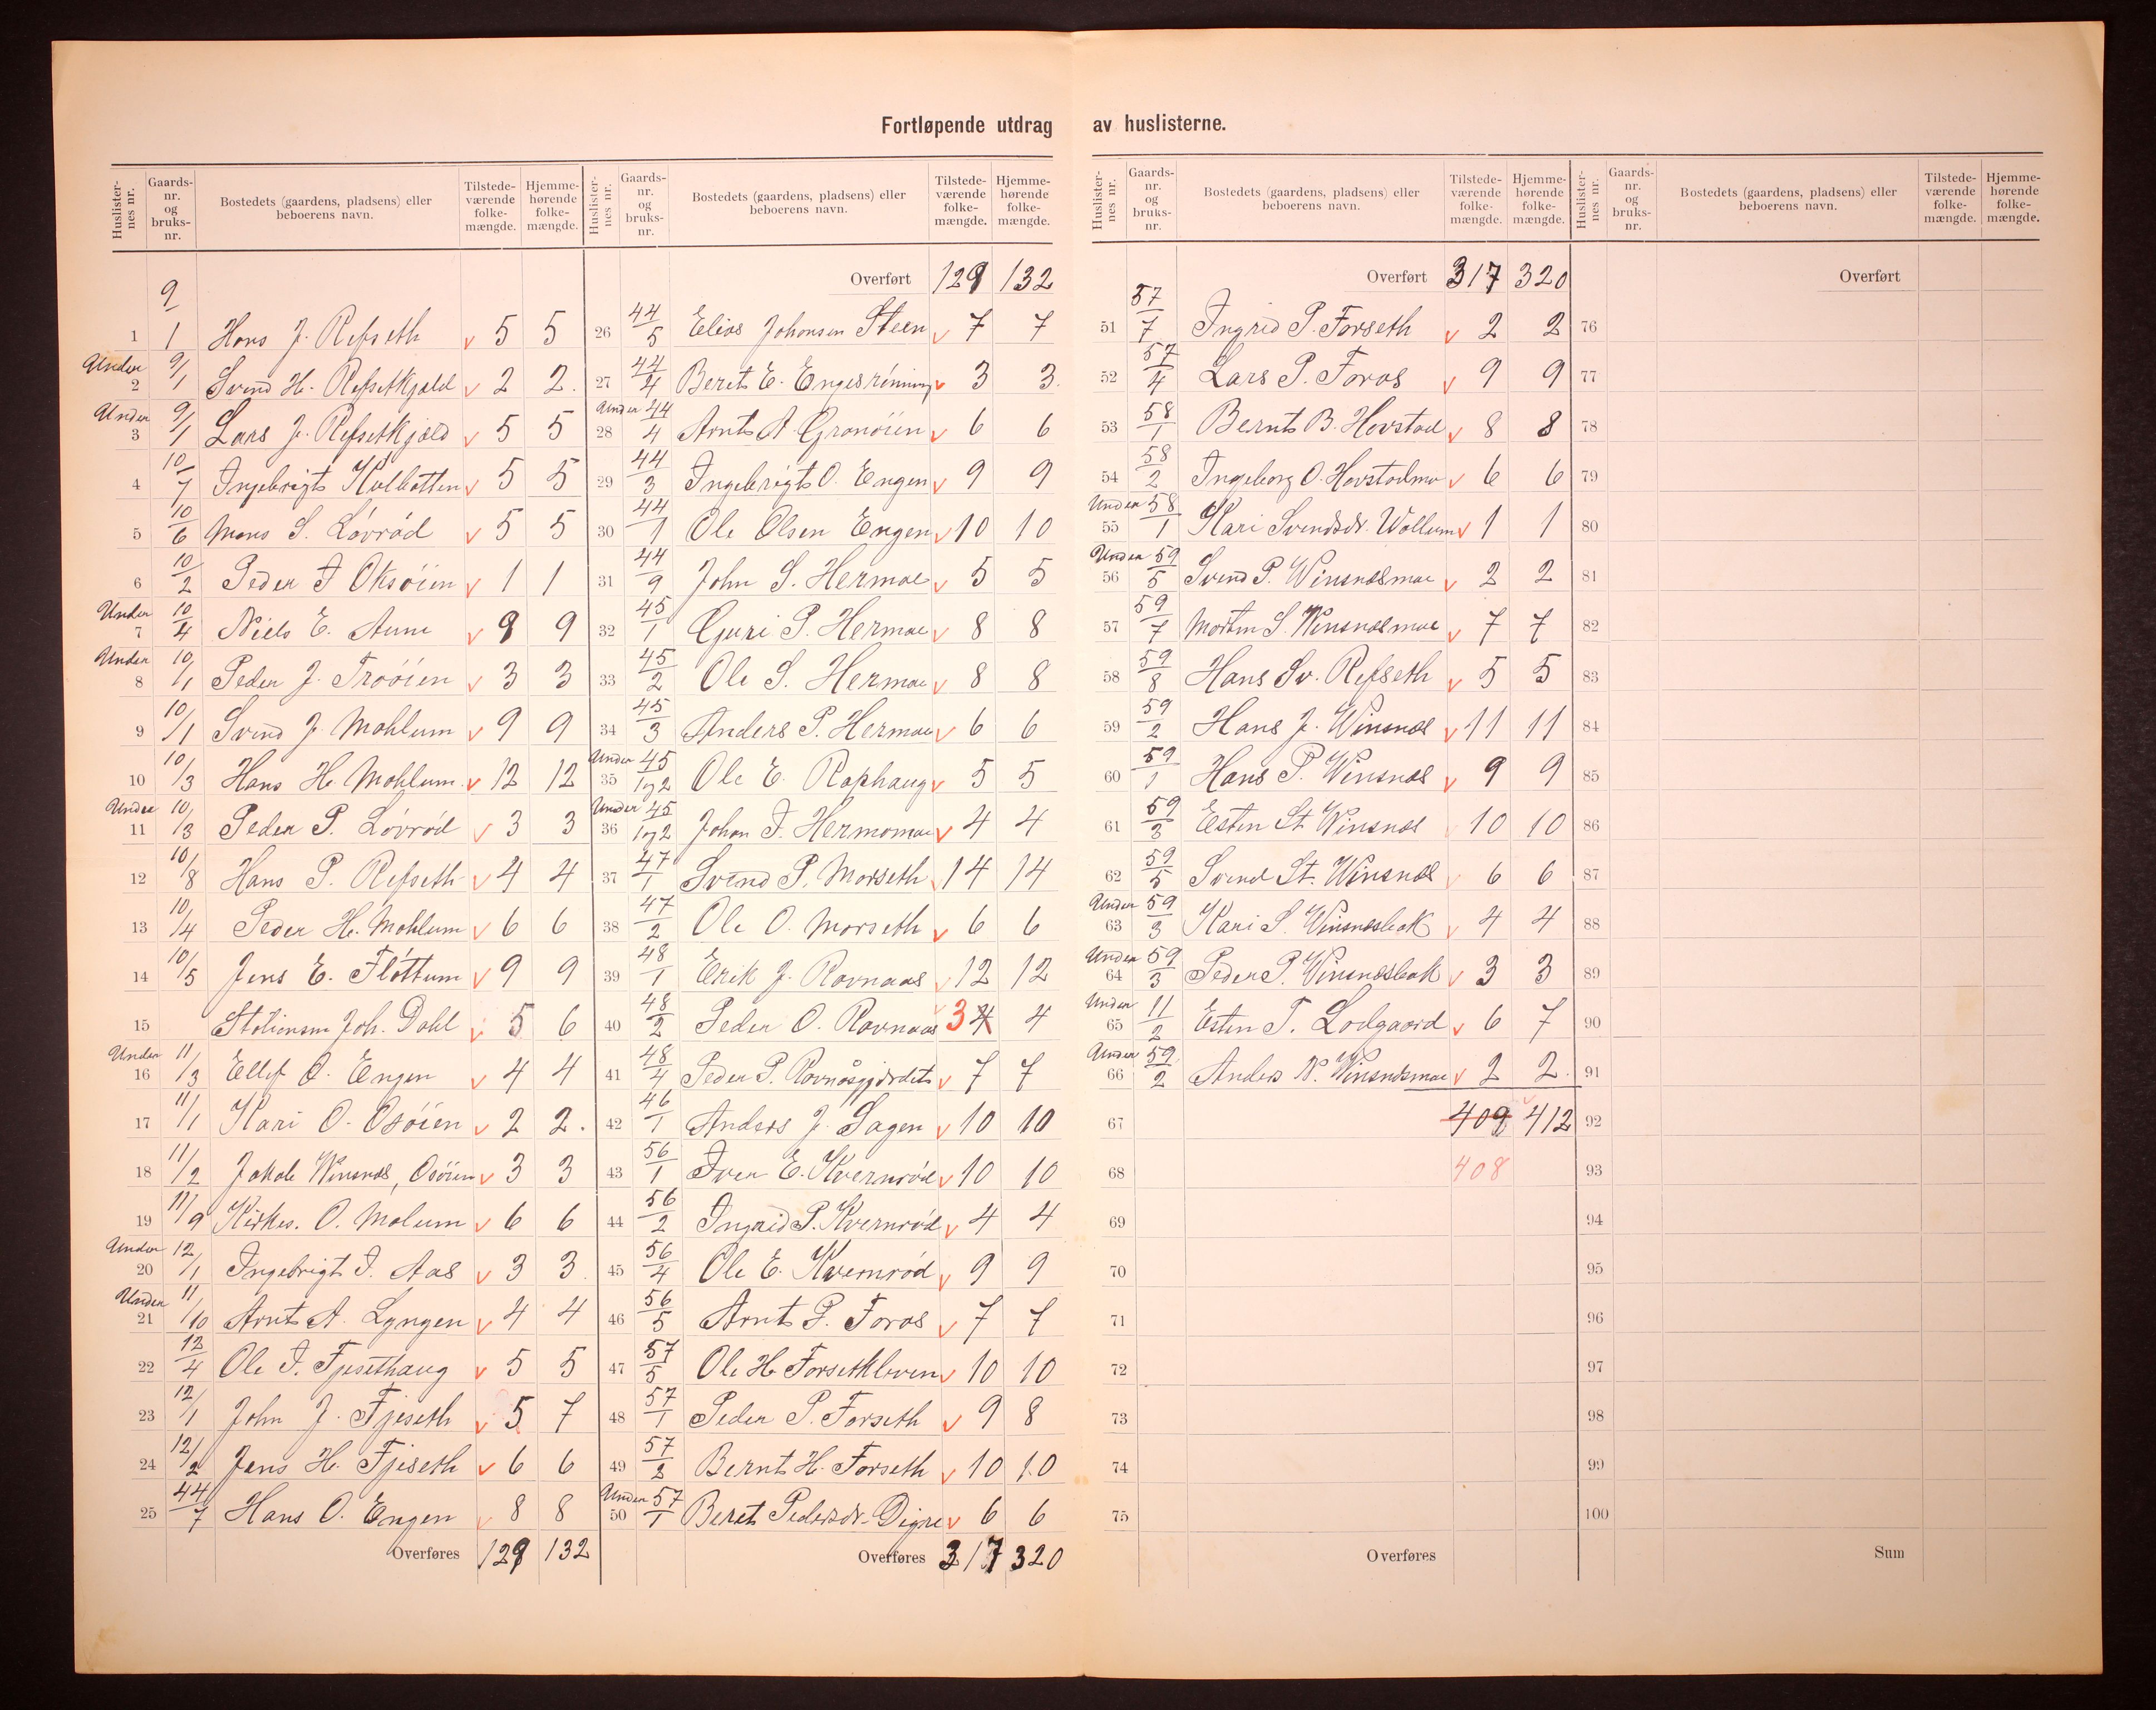 Fortløpende utdrag av huslisterne.
Huslister-nes nr. Gaards-nr. og bruks-nr. Bostedets (gaardens, pladsens) eller beboerens navn. Tilstede-værende folke-mængde. Hjemme-hørende folke-mængde.
1 9/1 Hans J. Refseth v 5 5
Under 2 9/1 Svend H. Refsetkjold v 2 2.
Under 3 9/1 Lars J. Refsetkjold v 5 5
4 10/7 Ingebrigt Kulbotten v 5 5
5 10/6 Mons S. Lovrød v 5 5
6 10/2 Peder I Oksøien v 1 1
Under 7 10/4 Niels E. Aune v 9 9
Under 8 10/1 Peder J. Trøoien v 3 3
9 10/1 Svend J. Mohlum v 9 9
10 10/3 Hans H. Mohlum v 12 12
Under 11 10/3 Peder P. Lovrød v 3 3
12 10/8 Hans P. Refseth v 4 4
13 10/4 Peder H. Mohlum v 6 6
14 10/5 Jens E. Fløttum v 9 9
15 Stationsm Joh. Dahl v 5 6
Under 16 11/3 Ellef O. Engen v 4 4
17 11/1 Kari O. Osøien v 2 2.
18 11/2 Jakob Winsnes, Osøien v 3 3
19 11/9 Kirkes. O. Molum v 6 6
Under 20 12/1 Ingebrigt I. Aas v 3 3
Under 21 11/10 Arnt A. Lyngen v 4 4
22 12/4 Ole I. Fjesethaug v 5 5
23 12/1 John J. Fjeseth v 5 7
24 12/2 Jens H. Fjeseth v 6 6
25 44/7 Hans O. Engen v 8 8
Overføres 129 132
Huslister-nes nr. Gaards-nr. og bruks-nr. Bostedets (gaardens, pladsens) eller beboerens navn. Tilstede-værende folke-mængde. Hjemme-hørende folke-mængde.
Overført 129 132
26 44/5 Elias Johansen Steen v 7 7
27 44/4 Beret E. Engesrønning v 3 3.
Under 28 44/4 Arnt A. Granøien v 6 6
29 44/3 Ingebrigt O. Engen v 9 9
30 44/1 Ole Olsen Engen v 10 10
31 44/9 John S. Hermoe v 5 5
32 45/1 Guri P. Hermoe v 8 8
33 45/2 Ole S. Hermoe v 8 8
34 45/3 Anders P. Hermoe v 6 6
Under 35 45/1og2 Ole E. Raphaug v 5 5
Under 36 45/1og2 Johan I. Hermomoe v 4 4
37 47/1 Svend P. Morseth v 14 14
38 47/2 Ole O. Morseth v 6 6
39 48/1 Erik J. Ravnaas v 12 12
40 48/2 Peder O. Ravnaas v 3 4 4
41 48/4 Peder P. Ravnåsgjærdet v 7 7
42 46/1 Anders J. Sagen v 10 10
43 56/1 Iver E. Kvernrød v 10 10
44 56/2 Ingrid P. Kvernrød v 4 4
45 56/4 Ole E. Kvernrød v 9 9
46 56/5 Arnt P. Foros v 7 7
47 57/5 Ole H. Forsethleven v 10 10
48 57/1 Peder P. Forseth v 9 8
49 57/2 Bernt H. Forseth v 10 10
Under 50 57/1 Beret Pedersdr. Digre v 6 6
Overføres 317 320
Huslister-nes nr. Gaards-nr. og bruks-nr. Bostedets (gaardens, pladsens) eller beboerens navn. Tilstede-værende folke-mængde. Hjemme-hørende folke-mængde.
Overført 317 320
51 57/7 Ingrid P. Forseth v 2 2
52 57/4 Lars P. Foros v 9 9
53 58/1 Bernt B. Hovstad v 8 8
54 58/2 Ingeborg O. Hovstadmo v 6 6
Under 55 58/1 Kari Svendsdr. Wollum v 1 1
Under 56 59/5 Svend P. Winsnesmoe v 2 2
57 59/7 Morten S. Winsnesmoe v 7 7
58 59/8 Hans Sv. Refseth v 5 5
59 59/2 Hans J. Winsnes v 11 11
60 59/1 Hans P. Winsnes v 9 9
61 59/3 Esten St. Winsnes v 10 10
62 59/5 Svend St. Winsnes v 6 6
Under 63 59/3 Kari S. Winsnesbak v 4 4
Under 64 59/3 Peder P. Winsnesbak v 3 3
Under 65 11/2 Esten T. Lodgaard v 6 7
Under 66 59/2 Anders N. Winsnesmoe v 2 2.
67 409 412
68 408
69
70
71
72
73
74
75
Overføres
Huslister-nes nr. Gaards-nr. og bruks-nr. Bostedets (gaardens, pladsens) eller beboerens navn. Tilstede-værende folke-mængde. Hjemme-hørende folke-mængde.
Overført
76
77
78
79
80
81
82
83
84
85
86
87
88
89
90
91
92
93
94
95
96
97
98
99
100
Sum